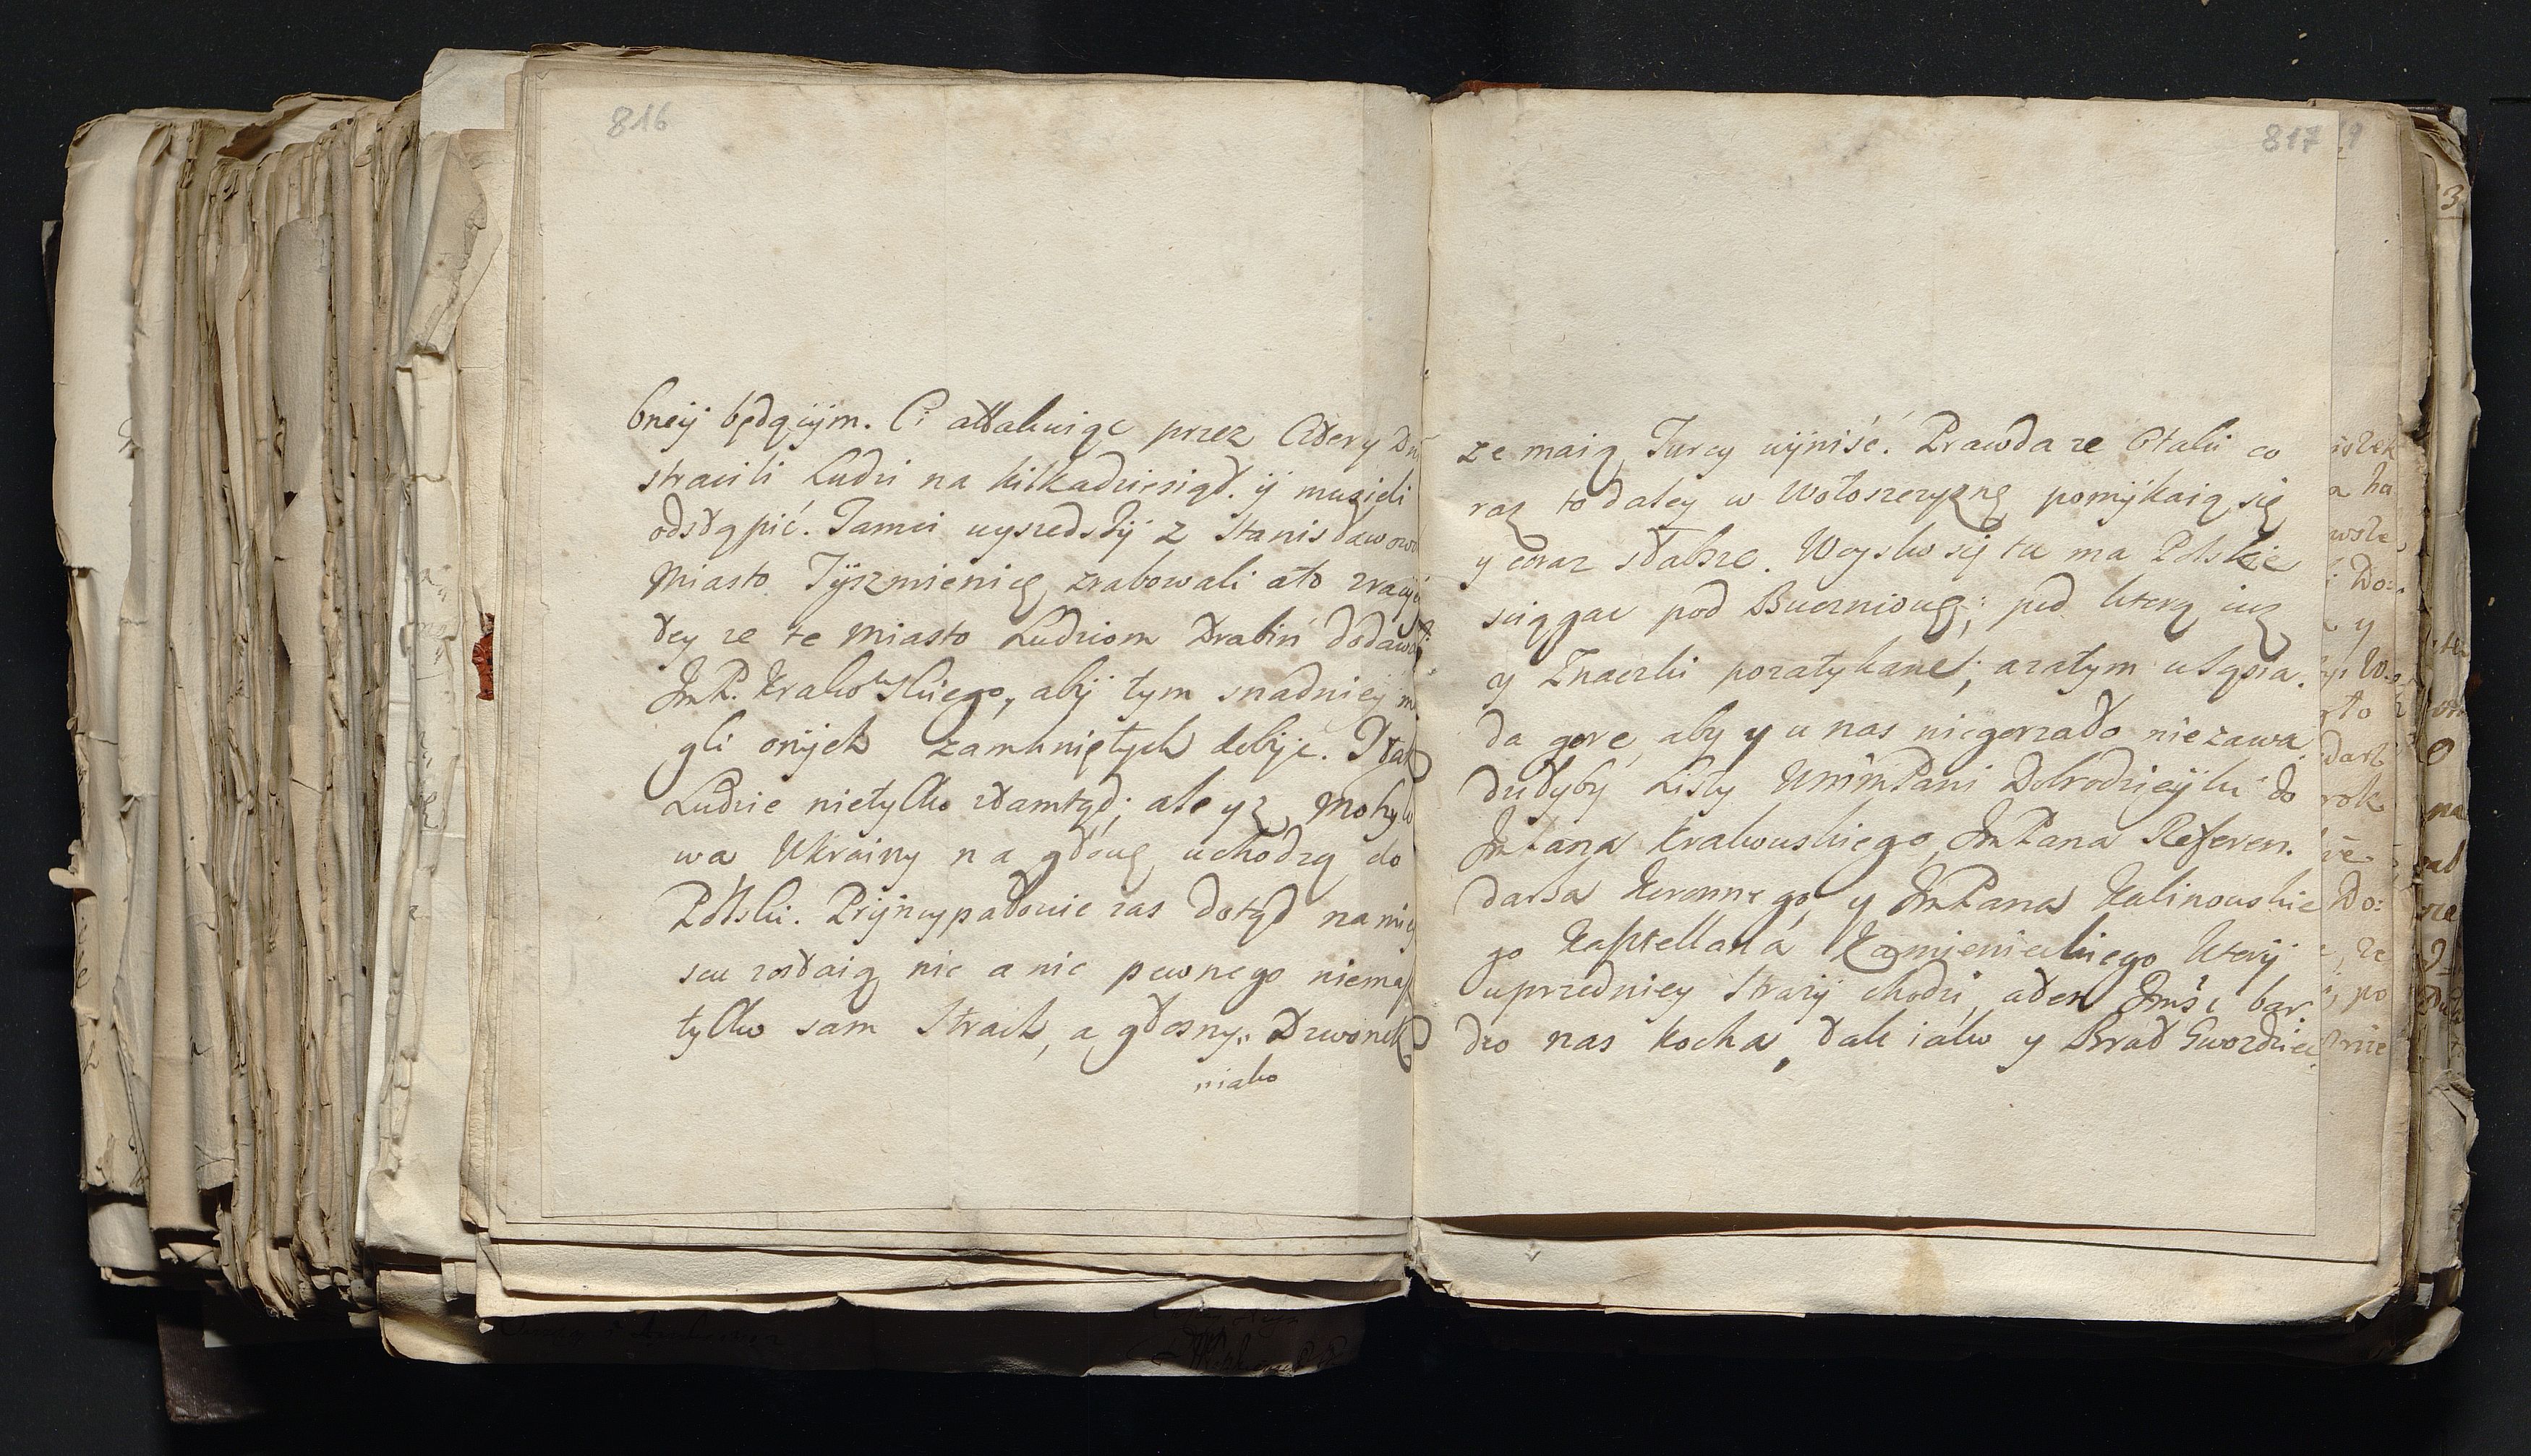 816
bneÿ będącÿm. Ci attakuiąc przez cztery Dni
stracili Ludzi na kilkadziesiąt. ÿ musieli
odstąpić. Tamci wyszedszÿ z Stanisławowa
Miasto Tÿszmienicę zrabowali a to z racÿi
tey ze te Miasto Ludziom Drabin dodawało
JmP. Krakowskiego, abÿ tym snadnieÿ mo
gli onÿch zamkniętych dobÿć. I tak
Ludzie nietylko ztamtąd; ale y z Mohylo
wa Ukrainy na głowę uchodzą do
Polski. Prÿncypałowie zas dotąd na miey
scu zostaią nic a nic pewnego niemasz
tylko sam strach, a głosny Dzwonek
niako
817
ze maią Turcy wÿniść. Prawda ze Otaki co
raz to daley w Wołoszczyznę pomÿkaią się
y coraz słabsze. Woysko się tu ma Polskie
sciągac pod Buczniowę; pod ktorą iuz
y Znaczki pozatykane; a zatym
da gore aby y u nas niegorzało nie zawa
dziłyby Listy WmmPani Dobrodzieÿki do
JmPana Krakowskiego, JmPana Referen.
darza Koronnego y JmPana Kalinowskie
go Kasztellana Kamienieckiego ktorÿ
w przedniey strazÿ chodzi, a ten Jmść bar
dzo nas kocha, tak iako y Brat Gwozdziec